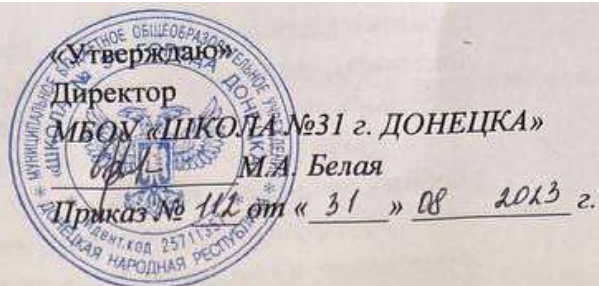 «Утверждаю»
Директор
МБОУ «ШКОЛА №31 г. ДОНЕЦКА»
М.А. Белая
Приказ № 112 от « 31 » 08 2023 г.
МУНИЦИПАЛЬНОЕ БЮДЖЕТНОЕ ОБЩЕОБРАЗОВАТЕЛЬНОЕ УЧРЕЖДЕНИЕ
ДОНЕЦКАЯ НАРОДНАЯ РЕСПУБЛИКА